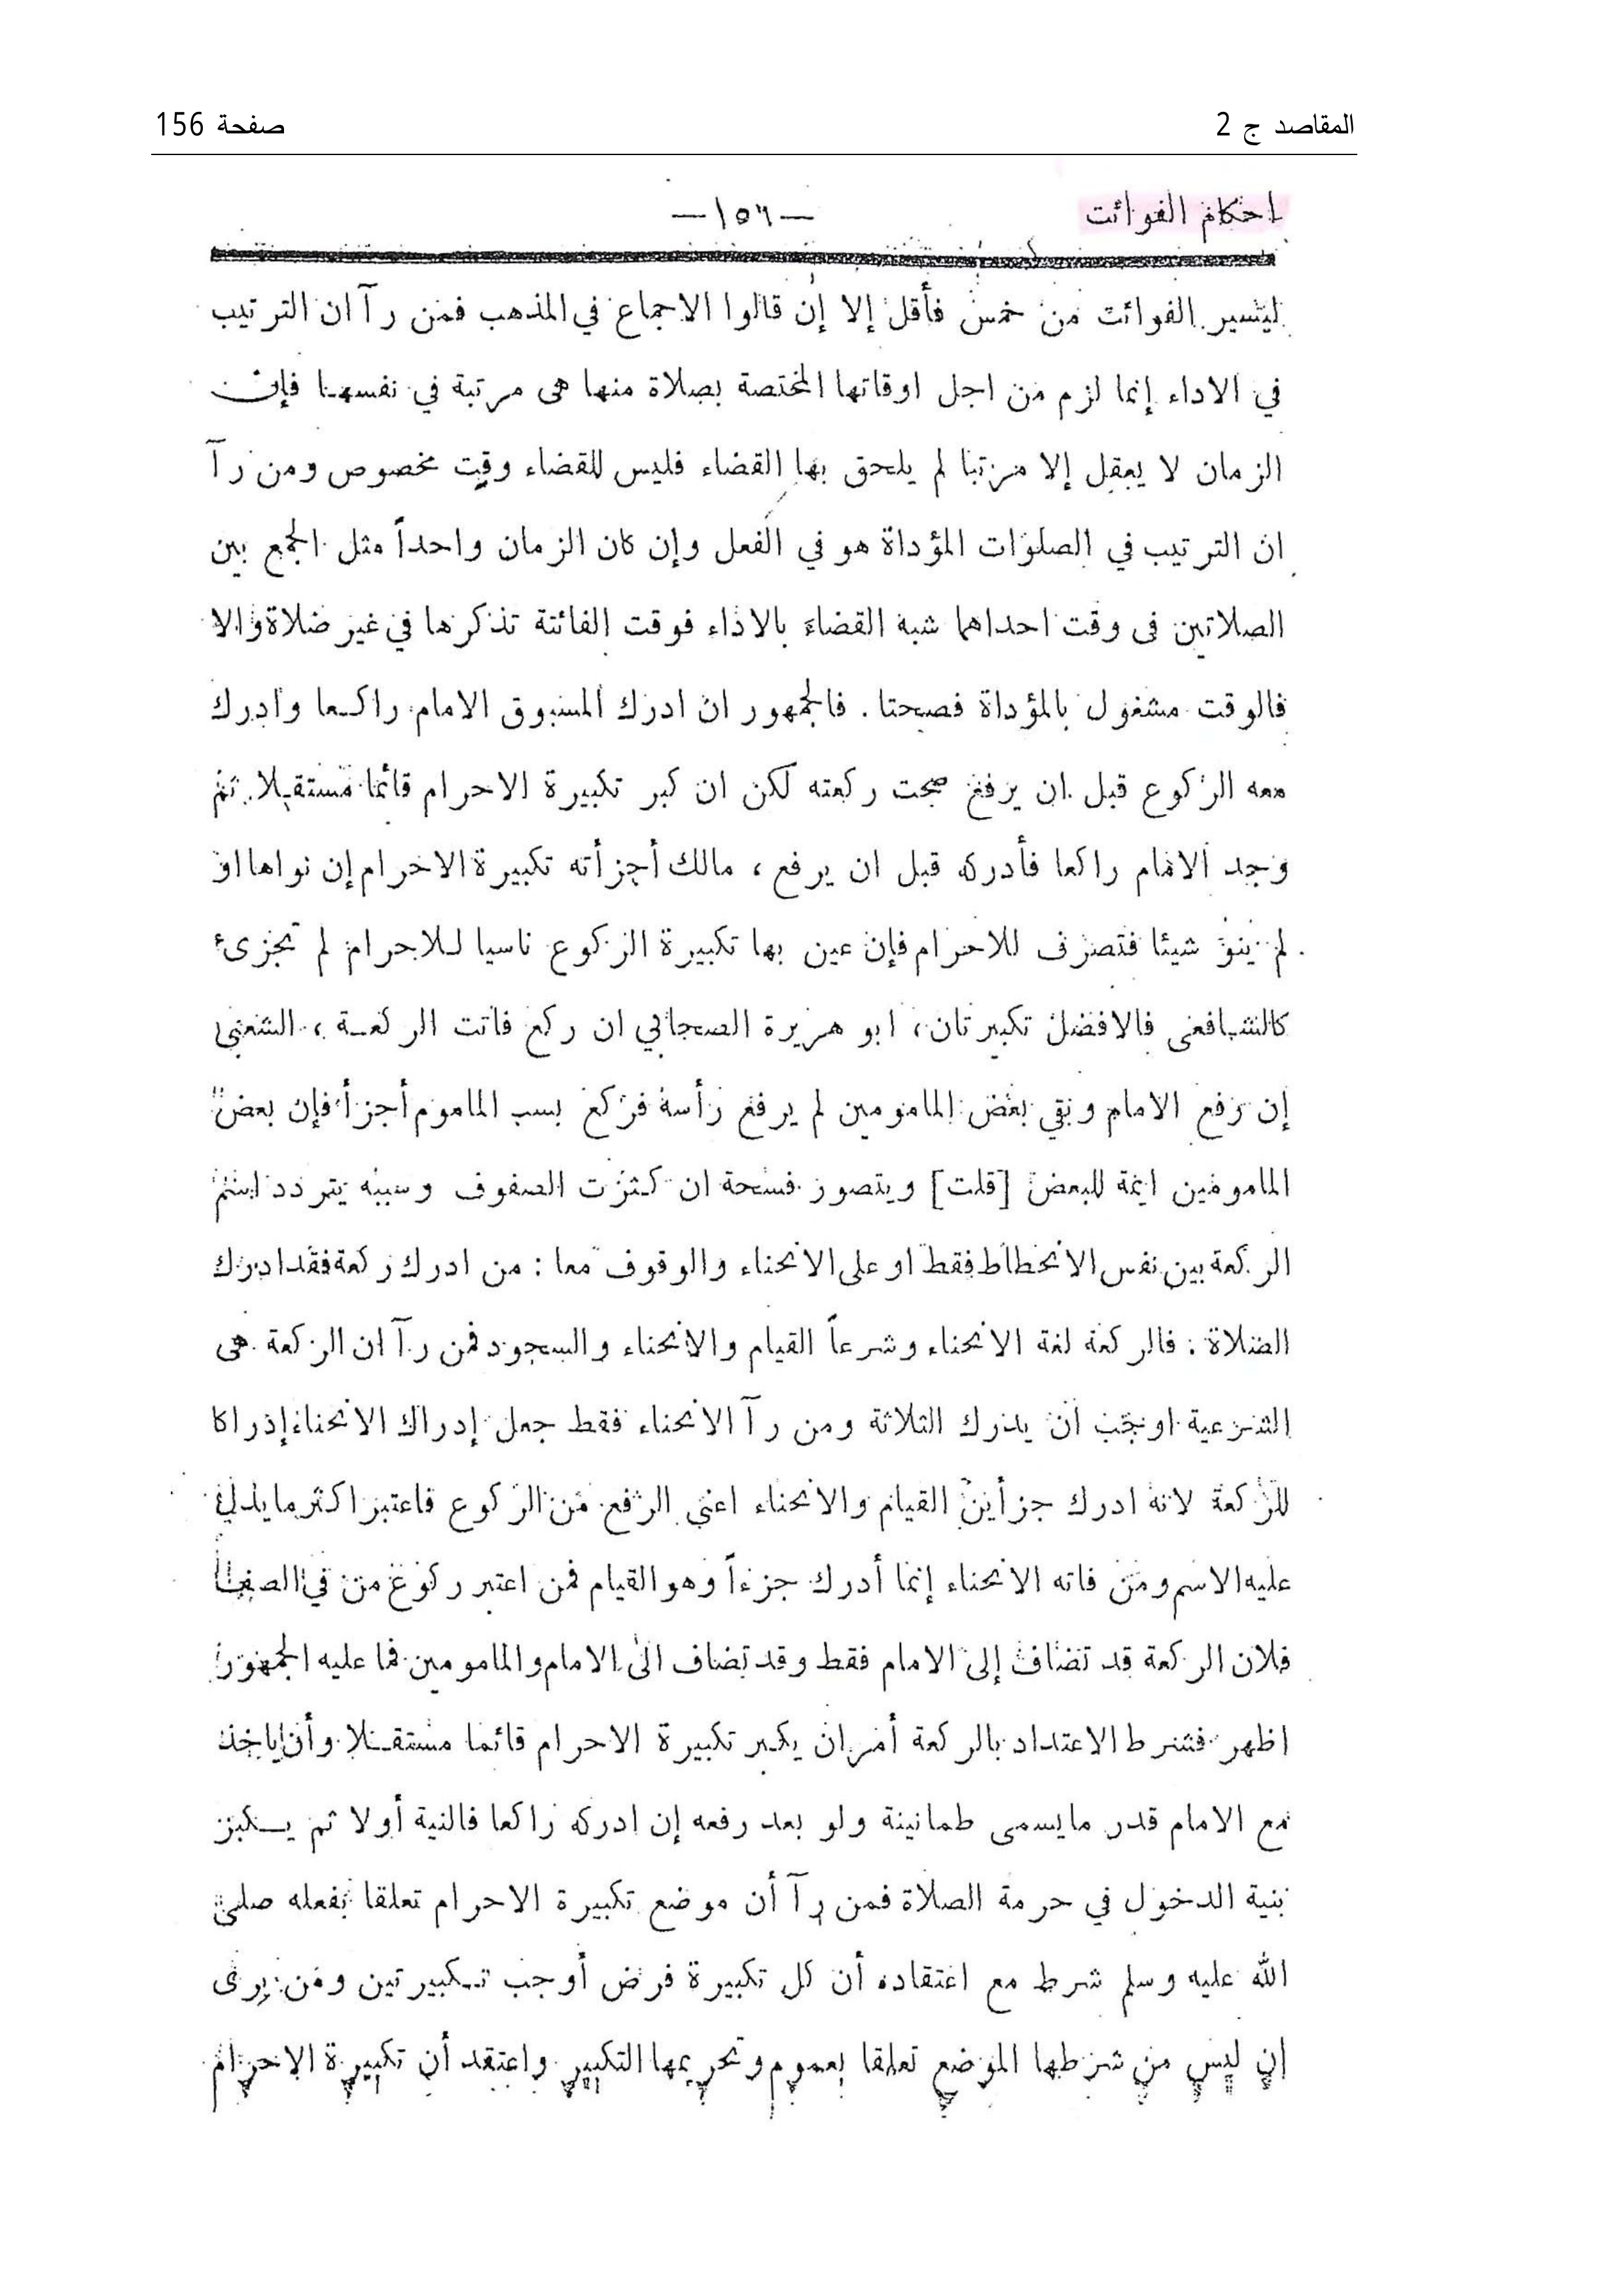 المقاصد ج 2
صفحة 156
احكام الفوائت
—١٥٦—
ليسير الفوائت من خمس فأقل إلا إن قالوا الاجماع في المذهب فمن رآ ان الترتيب
في الاداء إنما لزم من اجل اوقاتها المختصة بصلاة منها هى مرتبة في نفسها فإن
الزمان لا يعقل إلا مرتبا لم يلحق بها القضاء فليس للقضاء وقت مخصوص ومن رآ
ان الترتيب في الصلوات المؤداة هو في الفعل وإن كان الزمان واحداً مثل الجمع بين
الصلاتين فى وقت احداهما شبه القضاء بالاداء فوقت الفائتة تذكرها في غير صلاة والا
فالوقت مشغول بالمؤداة فصحتا. فالجمهور ان ادرك المسبوق الامام راكعا وادرك
معه الركوع قبل ان يرفع صحت ركعته لكن ان كبر تكبيرة الاحرام قائما مستقبلا ثم
وجد الامام راكعا فأدركه قبل ان يرفع، مالك أجزأته تكبيرة الاحرام إن نواها او
لم ينو شيئا فتصرف للاحرام فإن عين بها تكبيرة الركوع ناسيا للاحرام لم تجزىء
كالشافعى فالافضل تكبيرتان، ابو هريرة الصحابي ان ركع فاتت الركعة، الشعبى
إن رفع الامام وبقي بعض المامومين لم يرفع رأسه فركع بسبب الماموم أجزأ فإن بعض
المامومين ايمة للبعض [قلت] ويتصور فسحة ان كثرت الصفوف وسببه يتردد اسم
الركعة بين نفس الانحطاط فقط او على الانحناء والوقوف معا: من ادرك ركعة فقد ادرك
الصلاة: فالركعة لغة الانحناء وشرعاً القيام والانحناء والسجود فمن رآ ان الركعة هى
الشرعية اوجب ان يدرك الثلاثة ومن رآ الانحناء فقط جعل إدراك الانحناء إدراكا
للركعة لانه ادرك جزأين القيام والانحناء اعنى الرفع من الركوع فاعتبر اكثر ما يدل
عليه الاسم ومن فاته الانحناء إنما أدرك جزءاً وهو القيام فمن اعتبر ركوع من في الصف
فلان الركعة قد تضاف إلى الامام فقط وقد تضاف الى الامام والمامومين فما عليه الجمهور
اظهر فشرط الاعتداد بالركعة أمران يكبر تكبيرة الاحرام قائما مستقلا وأن ياخذ
مع الامام قدر مايسمى طمانينة ولو بعد رفعه إن ادركه راكعا فالنية أولا ثم يكبر
بنية الدخول في حرمة الصلاة فمن رآ أن موضع تكبيرة الاحرام تعلقا بفعله صلى
الله عليه وسلم شرط مع اعتقاده أن كل تكبيرة فرض أوجب تكبيرتين ومن يرى
ان ليس من شرطها الموضع تعلقا بعموم وتحريمها التكبير واعتقد أن تكبيرة الاحرام